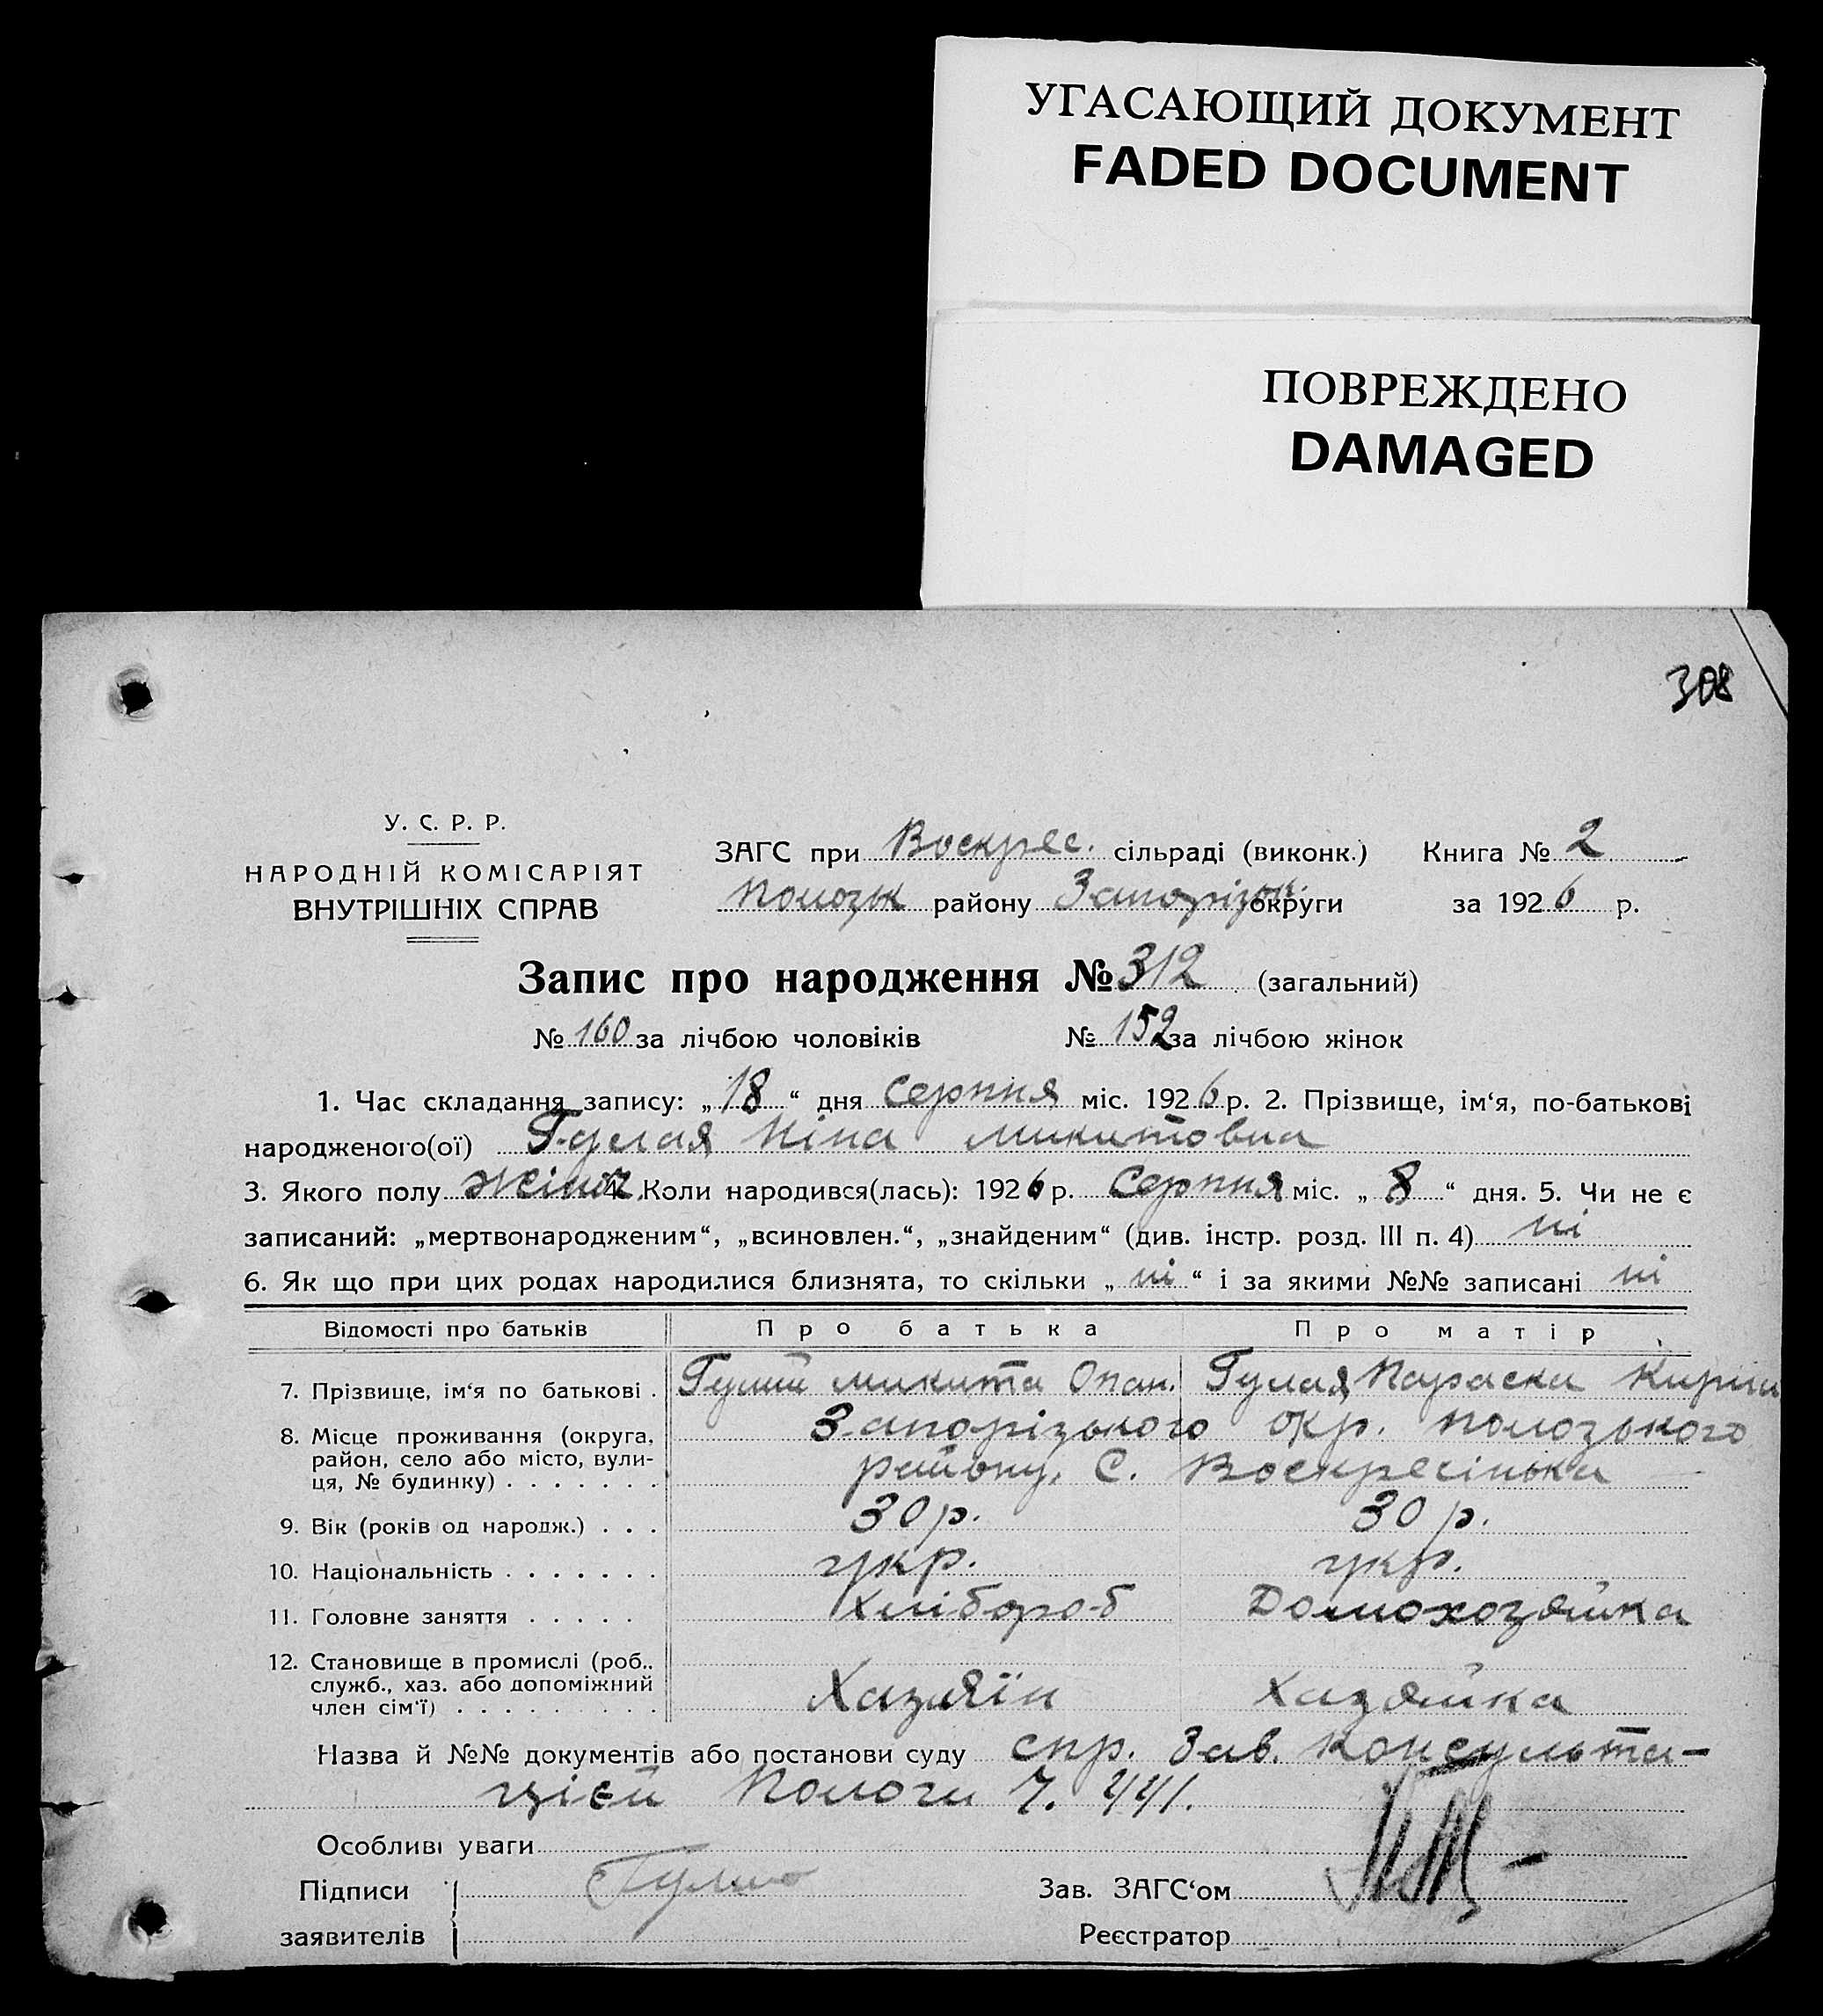 УГАСАЮЩИЙ ДОКУМЕНТ
FADED DOCUMENT
ПОВРЕЖДЕНО
DAMAGED
308
У. С. Р. Р.
НАРОДНІЙ КОМІСАРІЯТ
ВНУТРІШНІХ СПРАВ
ЗАГС при Воскрес. сільраді (виконк.) Книга № 2
Пологзьк району Запорізьк. округи за 1926 р.
Запис про народження № 312 (загальний)
№ 160 за лічбою чоловіків № 152 за лічбою жінок
1. Час складання запису: „18“ дня Серпня міс. 1926 р. 2. Прізвище, ім‘я, по-батькові
народженого(ої) Гулая Ніна Микитовна
3. Якого полу жіноч. 4. Коли народився(лась): 1926 р. Серпня міс. „8“ дня. 5. Чи не є
записаний: „мертвонародженим“, „всиновлен.“, „знайденим“ (див. інстр. розд. III п. 4) ні
6. Як що при цих родах народилися близнята, то скільки „ні“ і за якими №№ записані ні
Відомості про батьків Про батька Про матір
7. Прізвище, ім‘я по батькові . Гулий Микита Опан. Гулая Параска Кирил
8. Місце проживання (округа, район, село або місто, вулиця, № будинку) . . . . . . . Запорізького окр. Пологзького
району, С. Воскресінька
9. Вік (років од народж.) . . . 30 р. 30 р.
10. Національність . . . . . . . укр. укр.
11. Головне заняття . . . . . Хлібороб Домохозяйка
12. Становище в промислі (роб., служб., хаз. або допоміжний
член сім‘ї) . . . . . . . . . Хазяїн Хазяйка
Назва й №№ документів або постанови суду спр. Зав. Консульта-
цієй Пологи Ч. 441.
Особливі уваги
Підписи Зав. ЗАГС‘ом
заявителів Реєстратор